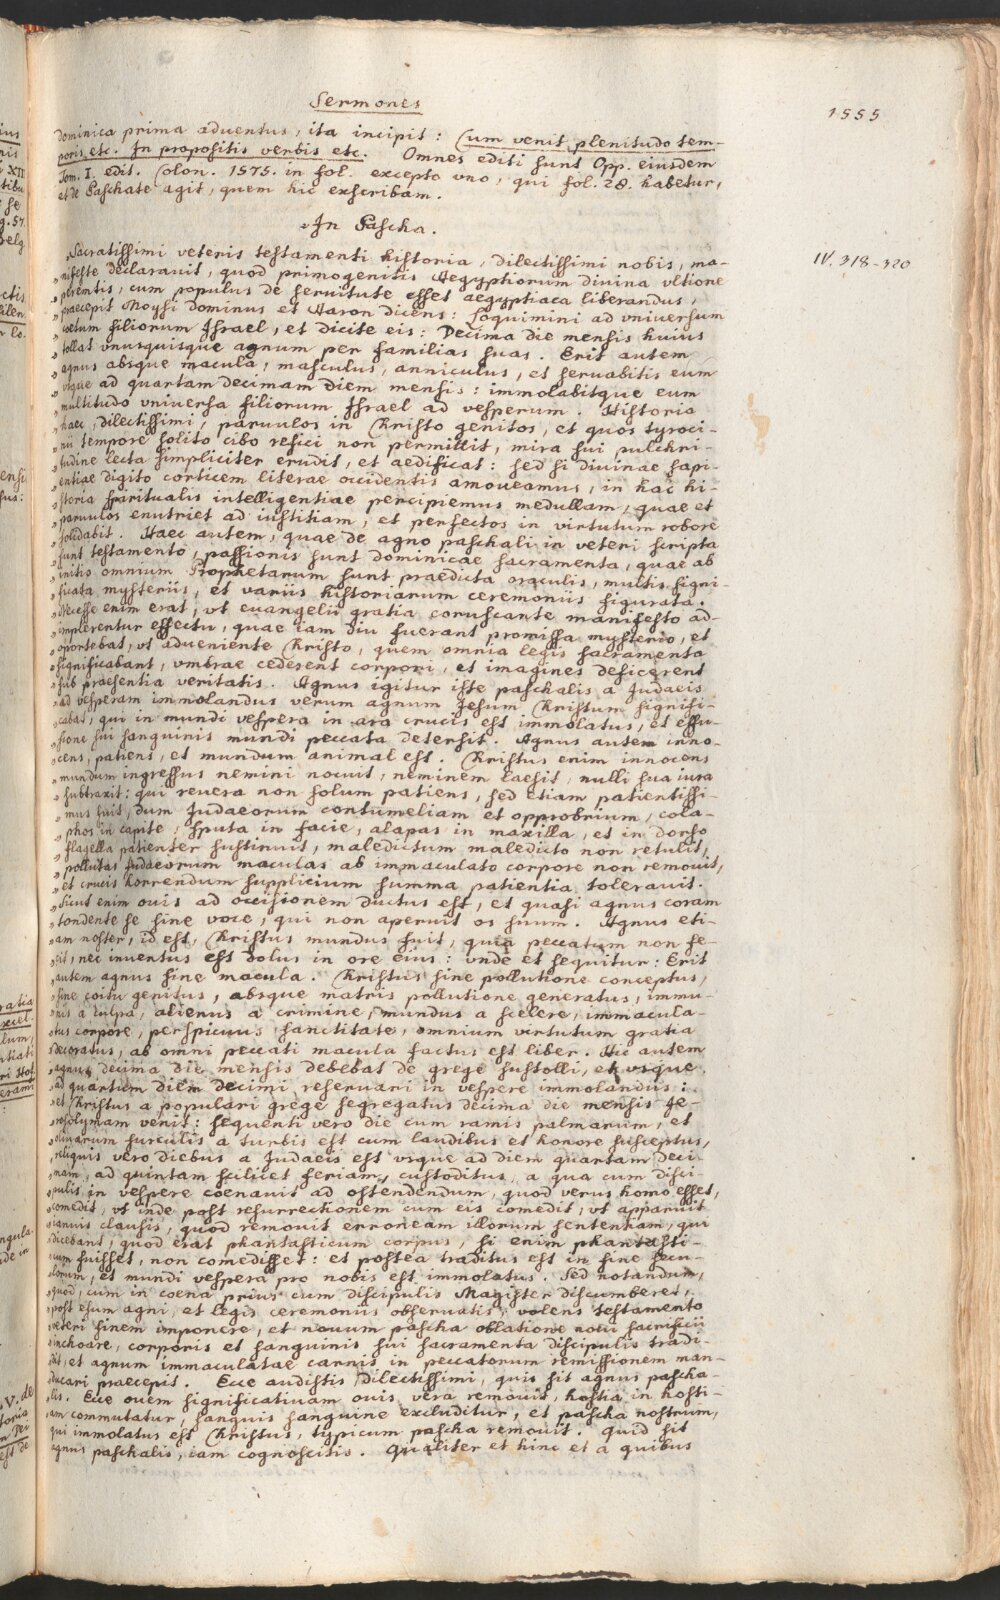 Sermones
1555
dominica prima aduentus, ita incipit: Cum venit plenitudo tem-
poris etc. In propositis verbis etc. Omnes editi sunt Opp. eiusdem
Tom. I. edit. Colon. 1575. in fol. excepto vno, qui fol. 28. habetur,
et de Paschate agit, quem hic exscribam.
„In Pascha.
IV. 318-320
„Sacratissimi veteris testamenti historia, dilectissimi nobis, ma-
„nifeste declarauit, quod primogenitis Aegyptiorum diuina vltione
„perentis, cum populus de seruitute esset aegyptiaca liberandus,
„praecepit Moysi dominus et Aaron dicens: Loquimini ad vniuersum
„coetum filiorum Israel, et dicite eis: Decima die mensis huius
„tollat vnusquisque agnum per familias suas. Erit autem
„agnus absque macula, masculus, anniculus, et seruabitis eum
„vsque ad quartam decimam diem mensis: immolabitque eum
„multitudo vniuersa filiorum Israel ad vesperum. Historia
„haec, dilectissimi, paruulos in Christo genitos, et quos tyroci-
„nii tempore solito cibo refici non permittit, mira sui pulchri-
„tudine lecta simpliciter erudit, et aedificat: sed si diuinae sapi-
„entiae digito corticem literae occidentis amoueamus, in hac hi-
„storia spiritualis intelligentiae percipiemus medullam, quae et
„paruulos enutriet ad iustitiam, et perfectos in virtutum robore
„solidabit. Haec autem, quae de agno paschali in veteri scripta
„sunt testamento, passionis sunt dominicae sacramenta, quae ab
„initio omnium Prophetarum sunt praedicta oraculis, multis signi-
„ficata mysteriis, et variis historiarum ceremoniis figurata.
„Necesse enim erat, vt euangelii gratia coruscante manifesto ad-
„implerentur effectu, quae iam diu fuerant promissa mysterio, et
„oportebat, vt adueniente Christo, quem omnia legis sacramenta
„significabant, vmbrae cederent corpori, et imagines deficerent
„sub praesentia veritatis. Agnus igitur iste paschalis a Judaeis
„ad vesperam immolandus verum agnum Jesum Christum signifi-
„cabat, qui in mundi vespera in ara crucis est immolatus, et effu-
„sione sui sanguinis mundi peccata detersit. Agnus autem inno-
„cens, patiens, et mundum animal est. Christus enim innocens
„mundum ingressus nemini nocuit, neminem laesit, nulli sua iura
„subtraxit: qui reuera non solum patiens, sed etiam patientissi-
„mus fuit, dum Judaeorum contumeliam et opprobrium, cola-
„phos in capite, sputa in facie, alapas in maxilla, et in dorso
„flagella patienter sustinuit, maledictum maledicto non retulit,
„pollutas Judaeorum maculas ab immaculato corpore non remouit,
„et crucis horrendum supplicium summa patientia tolerauit.
„Sicut enim ouis ad occisionem ductus est, et quasi agnus coram
„tondente se sine voce, qui non aperuit os suum. Agnus eti-
„am noster, id est, Christus mundus fuit, quia peccatum non fe-
„cit, nec inuentus est dolus in ore eius: vnde et sequitur: Erit
„autem agnus sine macula. Christus sine pollutione conceptus,
„sine coitu genitus, absque matris pollutione generatus, immu-
„nis a culpa, alienus a crimine, mundus a scelere, immacula-
„tus corpore, perspicuus sanctitate, omnium virtutum gratia
„decoratus, ab omni peccati macula factus est liber. Hic autem
„agnus decima die mensis debebat de grege sustolli, et vsque
„ad quartum diem decimi reseruari in vespere immolandus:
„et Christus a populari grege segregatus decima die mensis Je-
„rosolymam venit: sequenti vero die cum ramis palmarum, et
„oliuarum surculis a turbis est cum laudibus et honore susceptus,
„reliquis vero diebus a Judaeis est vsque ad diem quartam deci-
„mam, ad quintam scilicet feriam, custoditus, a qua cum disci-
„pulis in vespere coenauit ad ostendendum, quod verus homo esset,
„comedit, vt inde post resurrectionem cum eis comedit, vt apparuit
„ianuis clausis, quod remouit erroneam illorum sententiam, qui
„dicebant, quod erat phantasticum corpus, si enim phantasti-
„cum fuisset, non comedisset: et postea traditus est in fine secu-
„lorum, et mundi vespera pro nobis est immolatus. Sed notandum,
„quod, cum in coena prius cum discipulis Magister discumberet,
„post esum agni, et legis ceremoniis obseruatis, volens testamento
„veteri finem imponere, et nouum pascha oblatione noui sacrificii
„inchoare, corporis et sanguinis sui sacramenta discipulis tradi-
„dit, et agnum immaculatae carnis in peccatorum remissionem man-
„ducari praecepit. Ecce audistis, dilectissimi, quis sit agnus pascha-
„lis. Ecce ouem significatiuam ouis vera remouit, hostia in hosti-
„am commutatur, sanguis sanguine excluditur, et pascha nostrum,
„qui immolatus est Christus, typicum pascha remouit. Quid sit
„agnus paschalis, iam cognoscitis. Qualiter et hinc et a quibus